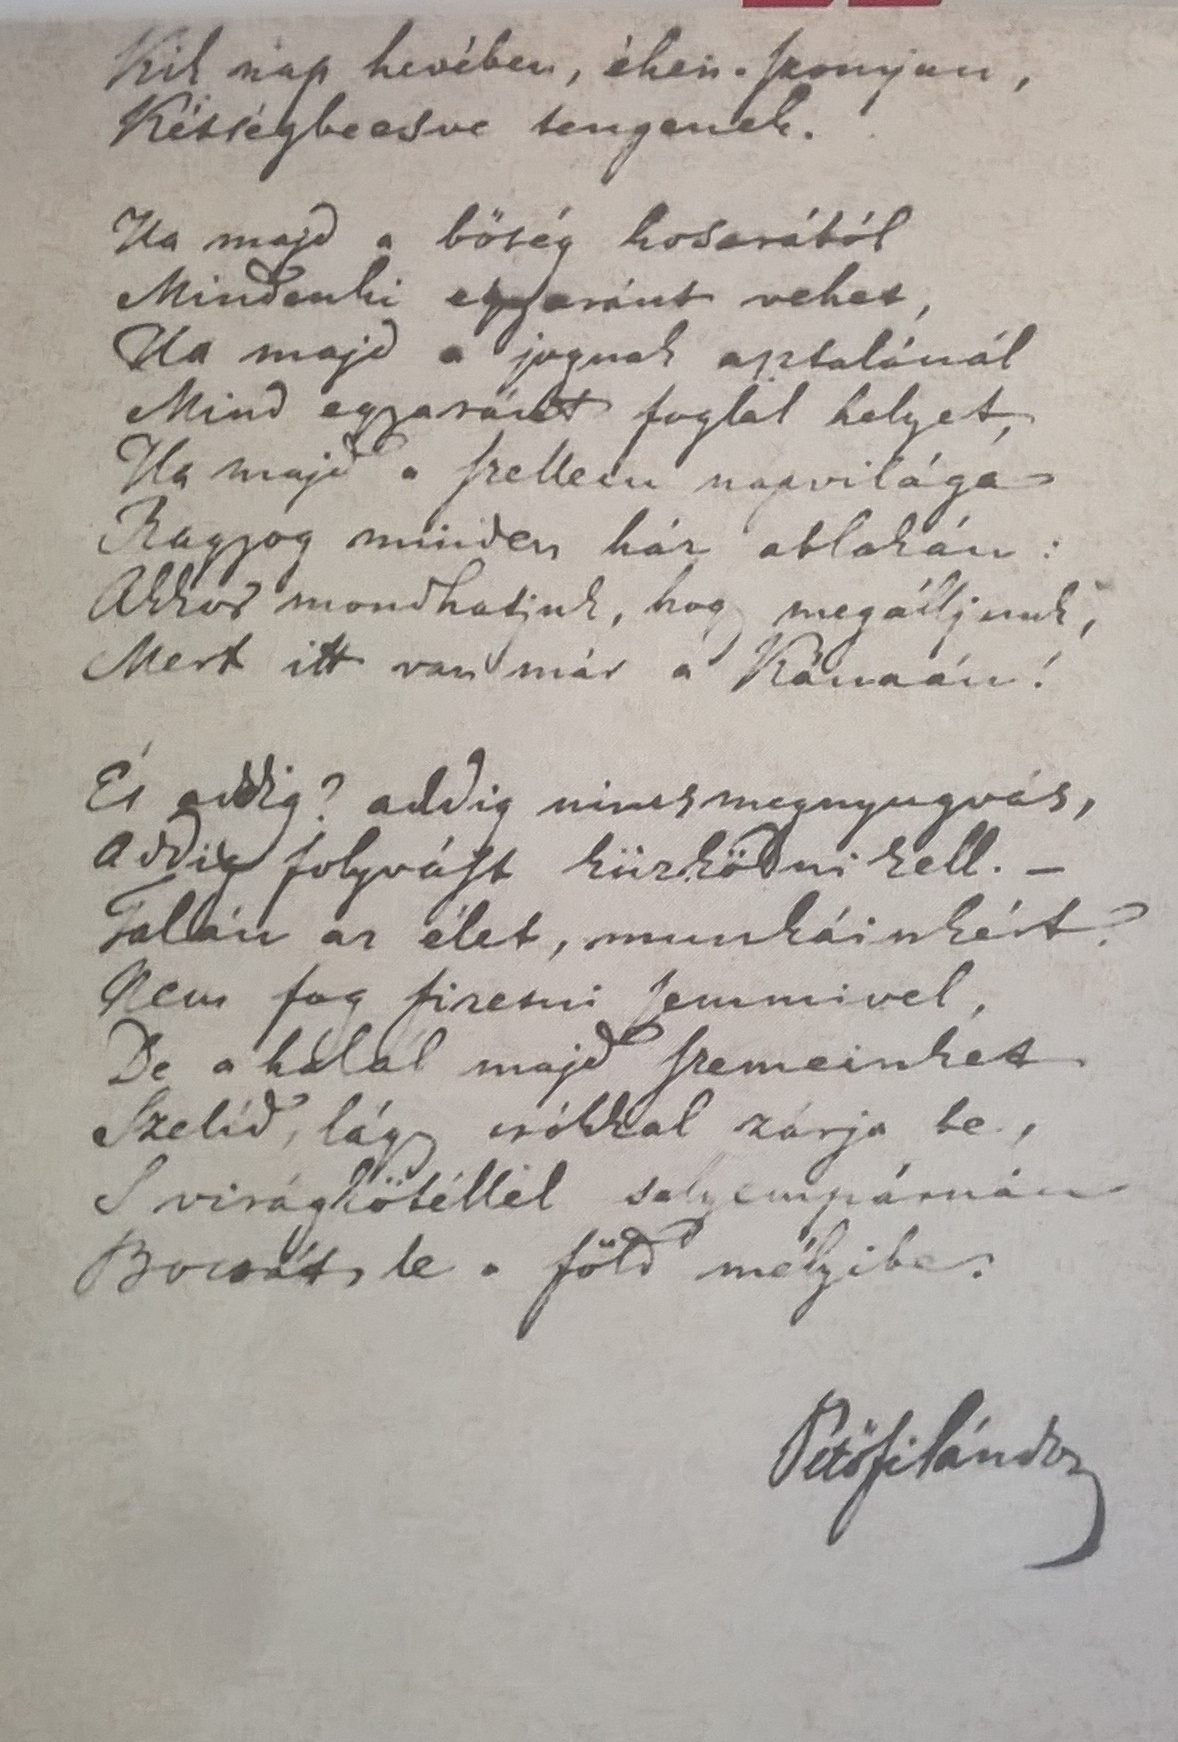 Kik nap hevében, éhen-szomjan,
Kétségbeesve tengenek.
Ha majd a bőség kosarából
Mindenki egyaránt vehet,
Ha majd a jognak asztalánál
Mind egyaránt foglal helyet,
Ha majd a szellem napvilága
Ragyog minden ház ablakán:
Akkor mondhatjuk, hogy megálljunk,
Mert itt van már a Kánaán!
És addig? addig nincs megnyugvás,
Addig folyvást küzködni kell. –
Talán az élet, munkáinkért?
Nem fog fizetni semmivel,
De a halál majd szemeinket
Szelíd, lágy csókkal zárja be,
S virágkötéllel selyempárnán
Bocsát le a föld mélyibe.
Petőfi Sándor